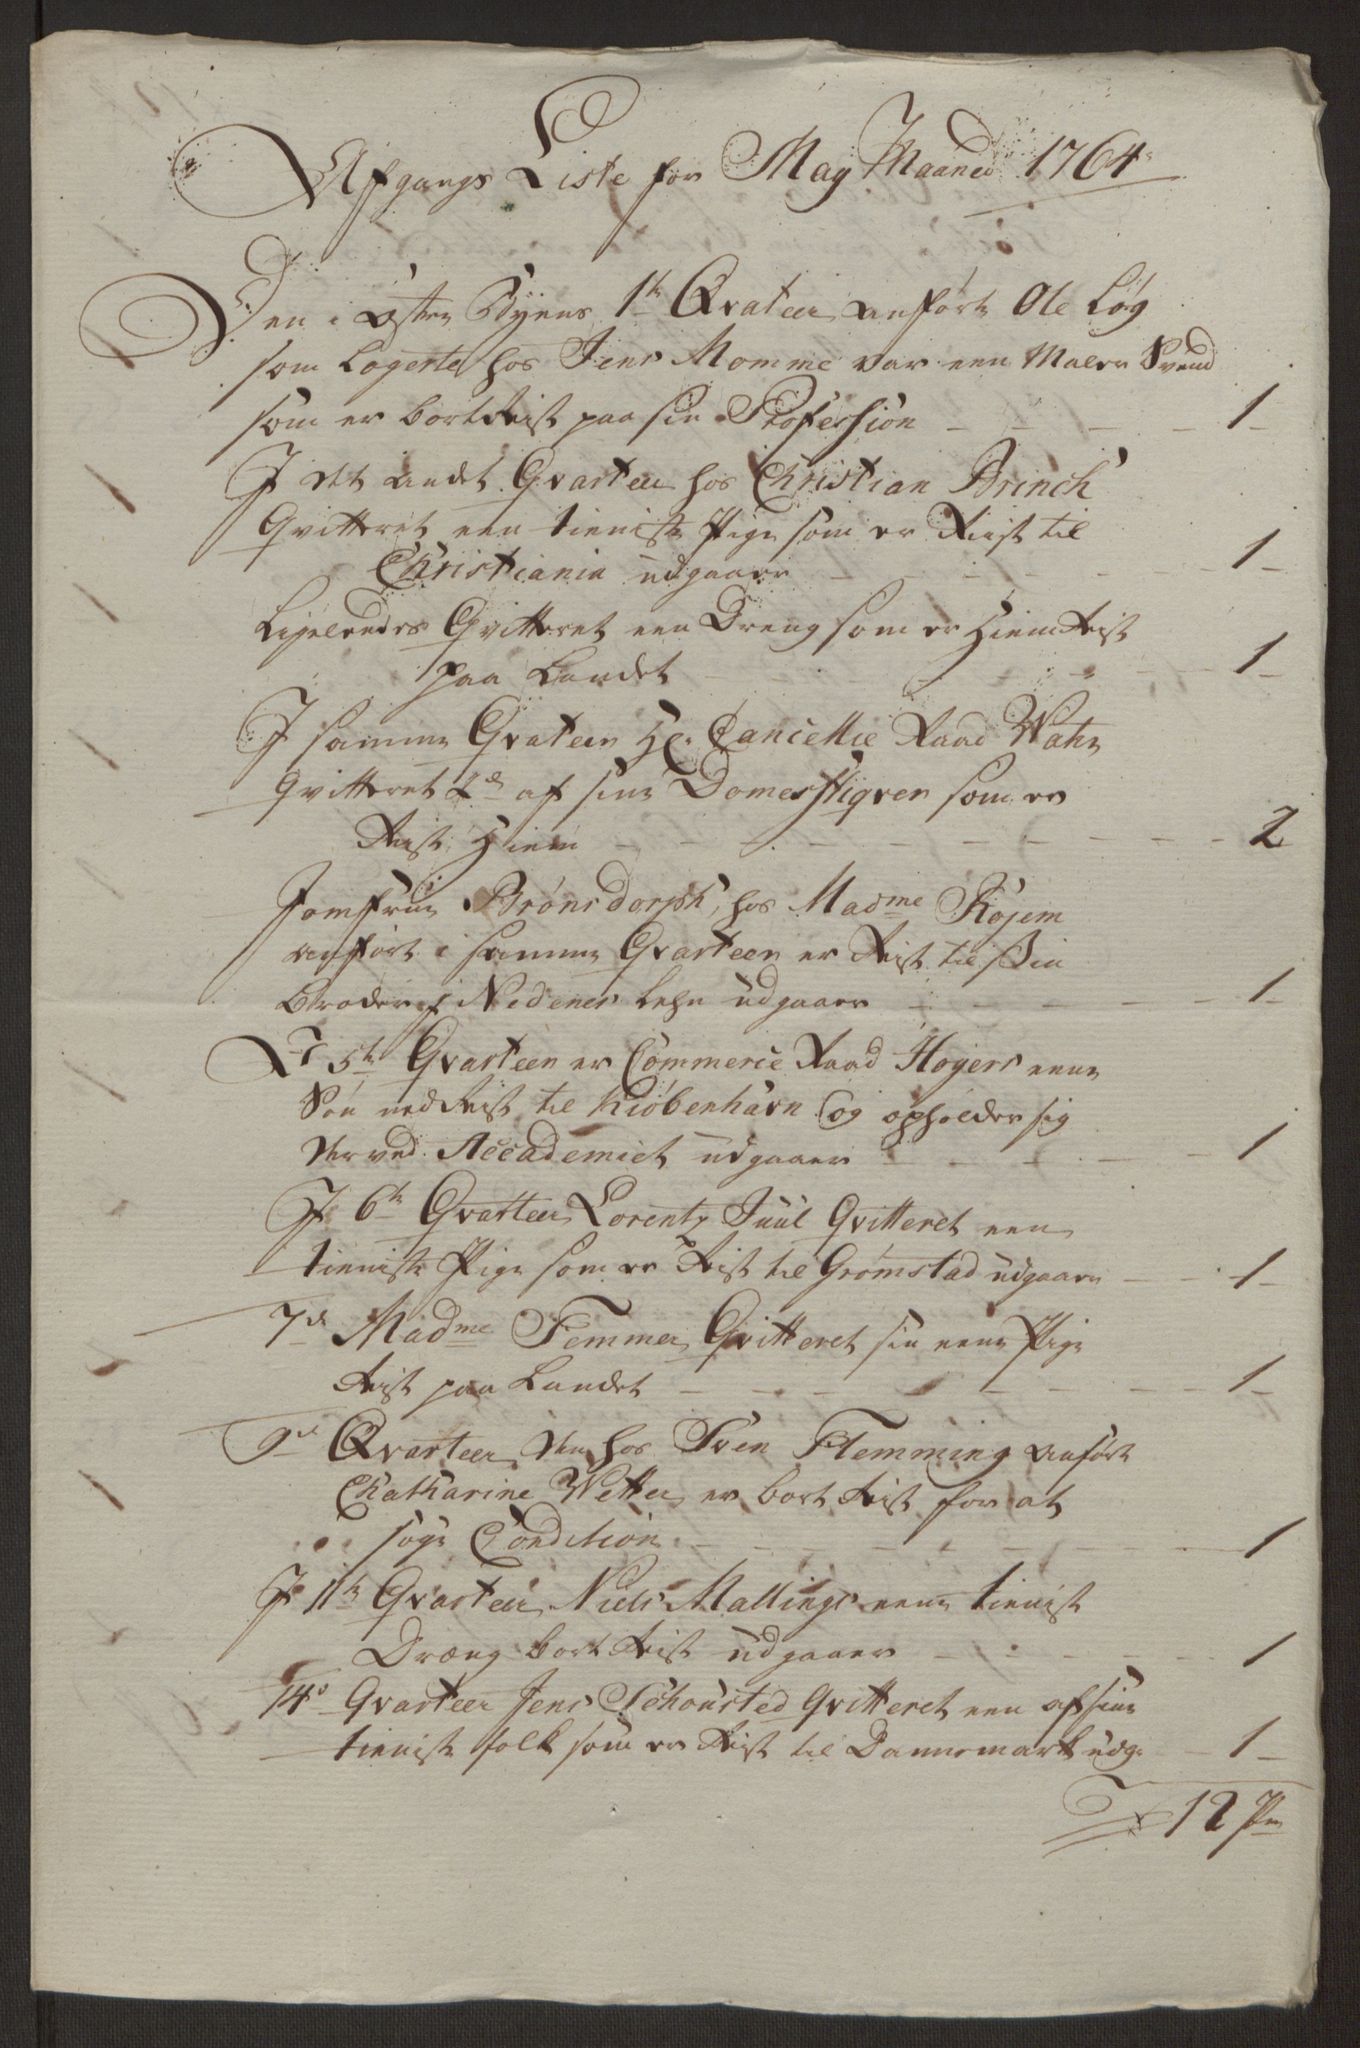 Afgangs Liste for May Maaned 1764
Den i Østre Byens 1te Qvateer anførte Ole Løg
som Logerte hos Jens Momme var een Maler Svend
som er bortReist paa sin Profession 1
I det andet Qvarteer hos Christian Brinch
Qvitteret een tieniste Pige som er Reist til
Christiania udgaaer 1
Ligeleedes Qvitteret een Dreng som er HiemReist
paa Landet 1
I samme Qvateer Hr. Cancellie Raad
Qvitteret 2de af sine Domestiqver som er
Reist Hiem 2
Jomfrue Brønsdorph, hos Madme Röjem
anført i samme Qvarteer er Reist til sin
Broder i Nedenes Lehn udgaaer 1
I 5te Qvarteer er Commerce Raad Høyers eene
Søn nedReist til Kiöbenhavn og opholder sig
der ved Accademiet udgaaer 1
I 6te Qvarteer Lorentz Juul Qvitteret een
tieniste Pige som er Reist til Grømstad udgaaer 1
7de Madme Femmer Qvitteret sin eene Pige
Reist paa Landet 1
9de Qvarteer den hos Sven Flemming anført
Chatharine Wetter er bort Reist for at
søge Condition 1
I 11te Qvarteer Niels Mallings eene tienist
Dræng bort Reist udgaaer 1
14de Qvarteer Jens Schousted Qvitteret een af sine
tieniste folk som er Reist til Dannemark udg: 1
12 Pn